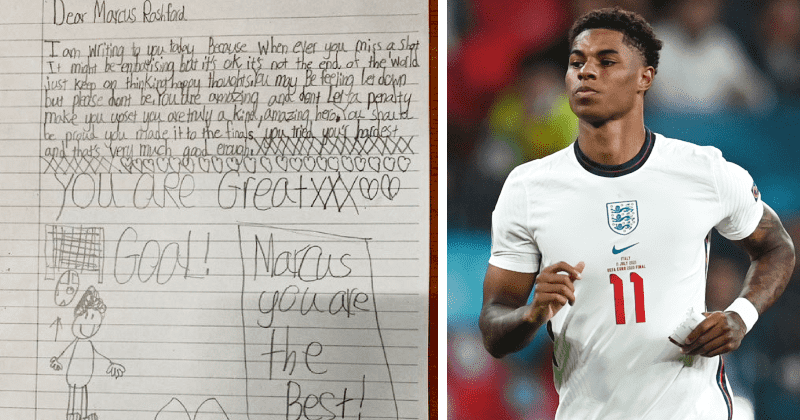 Dear Marcus Rashford
I am writing to you today Because When ever you miss a shot
It might be enbarising but it's ok it's not the end of the world
just keep on thinking happy thoughts you may Be feeling let down
but please dont be. You are amazing and dont let a penalty
make you upset you are truly a kind, amazing hero. You should
be proud you made it to the finals. you tried your hardest
and that's very much good enough. XXXXXXXXXXXXXX
You are Great XXX
GOAL!
Marcus
you are
the
Best!
ITALY
11 JULY 2021
UEFA EURO 2020 FINAL
11